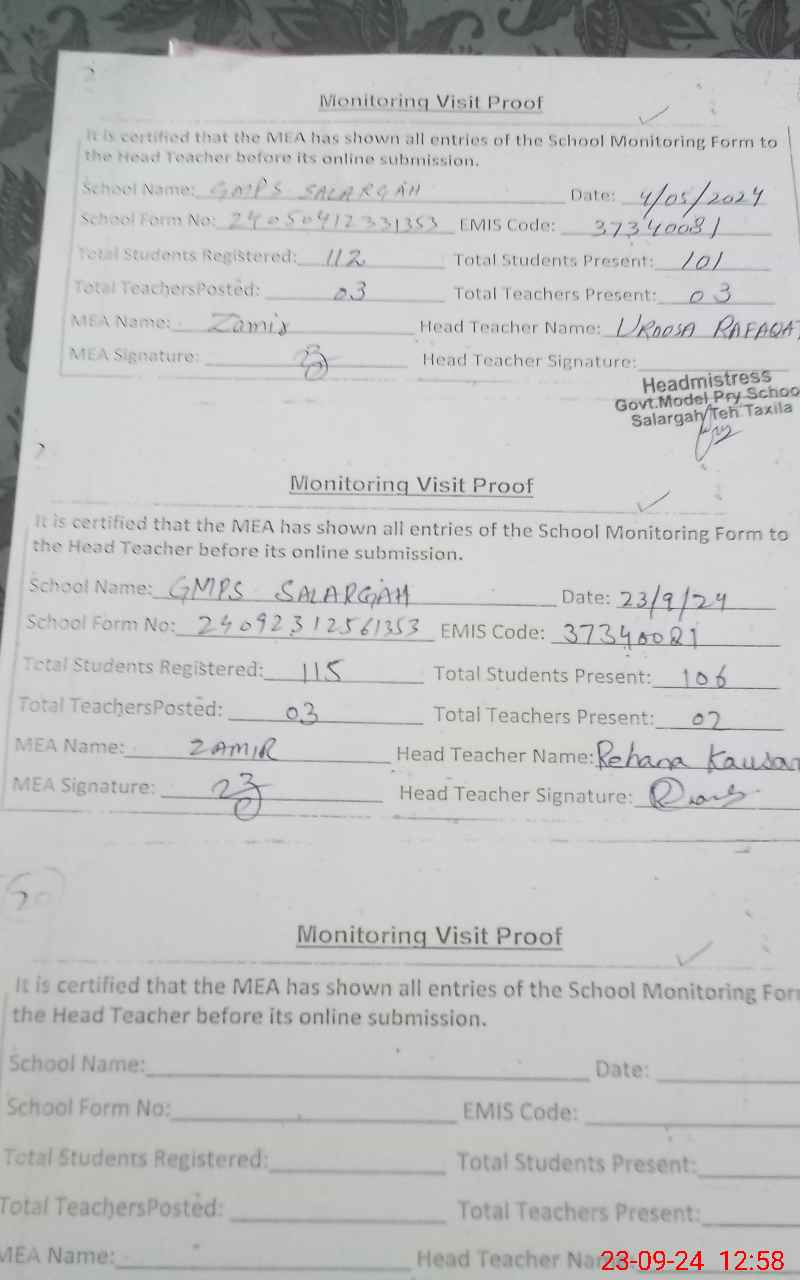 Monitoring Visit Proof
It is certified that the MEA has shown all entries of the School Monitoring Form to
the Head Teacher before its online submission.
School Name: GMPS SALARGAH Date: 4/05/2024
School Form No: 24050412331353 EMIS Code: 37340081
Total Students Registered: 112 Total Students Present: 101
Total TeachersPosted: 03 Total Teachers Present: 03
MEA Name: Zamir Head Teacher Name: UROOSA RAFAQAT
MEA Signature: Head Teacher Signature:
Headmistress
Govt.Model Pry School
Salargah Teh: Taxila
Monitoring Visit Proof
It is certified that the MEA has shown all entries of the School Monitoring Form to
the Head Teacher before its online submission.
School Name: GMPS SALARGAH Date: 23/9/24
School Form No: 24092312561353 EMIS Code: 37340081
Total Students Registered: 115 Total Students Present: 106
Total TeachersPosted: 03 Total Teachers Present: 02
MEA Name: ZAMIR Head Teacher Name: Rehana Kausar
MEA Signature: Head Teacher Signature:
Monitoring Visit Proof
It is certified that the MEA has shown all entries of the School Monitoring For
the Head Teacher before its online submission.
School Name: Date:
School Form No: EMIS Code:
Total Students Registered: Total Students Present:
Total TeachersPosted: Total Teachers Present:
MEA Name: Head Teacher Name:
23-09-24 12:58